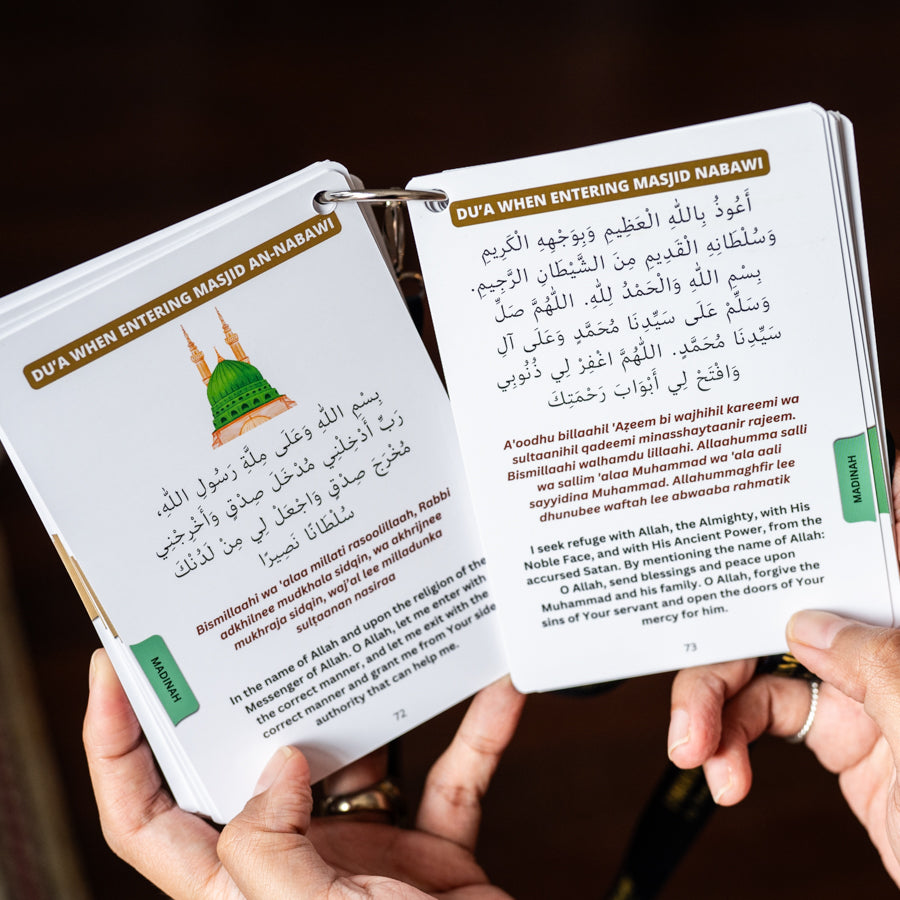 DU'A WHEN ENTERING MASJID AN-NABAWI
بِسْمِ اللهِ وَعَلَى مِلَّةِ رَسُولِ اللهِ،
رَبِّ أَدْخِلْنِي مُدْخَلَ صِدْقٍ وَأَخْرِجْنِي
مُخْرَجَ صِدْقٍ وَاجْعَلْ لِي مِنْ لَدُنْكَ
سُلْطَانًا نَصِيرًا
Bismillaahi wa 'alaa millati rasoolillaah, Rabbi
adkhilnee mudkhala sidqin, wa akhrijnee
mukhraja sidqin, waj'al lee milladunka
sulṭaanan nasiraa
In the name of Allah and upon the religion of the
Messenger of Allah. O Allah, let me enter with
the correct manner, and let me exit with the
correct manner and grant me from Your side
authority that can help me.
72
MADINAH
DU'A WHEN ENTERING MASJID NABAWI
أَعُوذُ بِاللهِ الْعَظِيمِ وَبِوَجْهِهِ الْكَرِيمِ
وَسُلْطَانِهِ الْقَدِيمِ مِنَ الشَّيْطَانِ الرَّجِيمِ.
بِسْمِ اللهِ وَالْحَمْدُ لِلّٰهِ. اللَّهُمَّ صَلِّ
وَسَلِّمْ عَلَى سَيِّدِنَا مُحَمَّدٍ وَعَلَى آلِ
سَيِّدِنَا مُحَمَّدٍ. اللَّهُمَّ اغْفِرْ لِي ذُنُوبِي
وَافْتَحْ لِي أَبْوَابَ رَحْمَتِكَ
A'oodhu billaahil 'Aẓeem bi wajhihil kareemi wa
sultaanihil qadeemi minasshaytaanir rajeem.
Bismillaahi walhamdu lillaahi. Allaahumma salli
wa sallim 'alaa Muhammad wa 'ala aali
sayyidina Muhammad. Allahummaghfir lee
dhunubee waftah lee abwaaba rahmatik
I seek refuge with Allah, the Almighty, with His
Noble Face, and with His Ancient Power, from the
accursed Satan. By mentioning the name of Allah:
O Allah, send blessings and peace upon
Muhammad and his family. O Allah, forgive the
sins of Your servant and open the doors of Your
mercy for him.
73
MADINAH